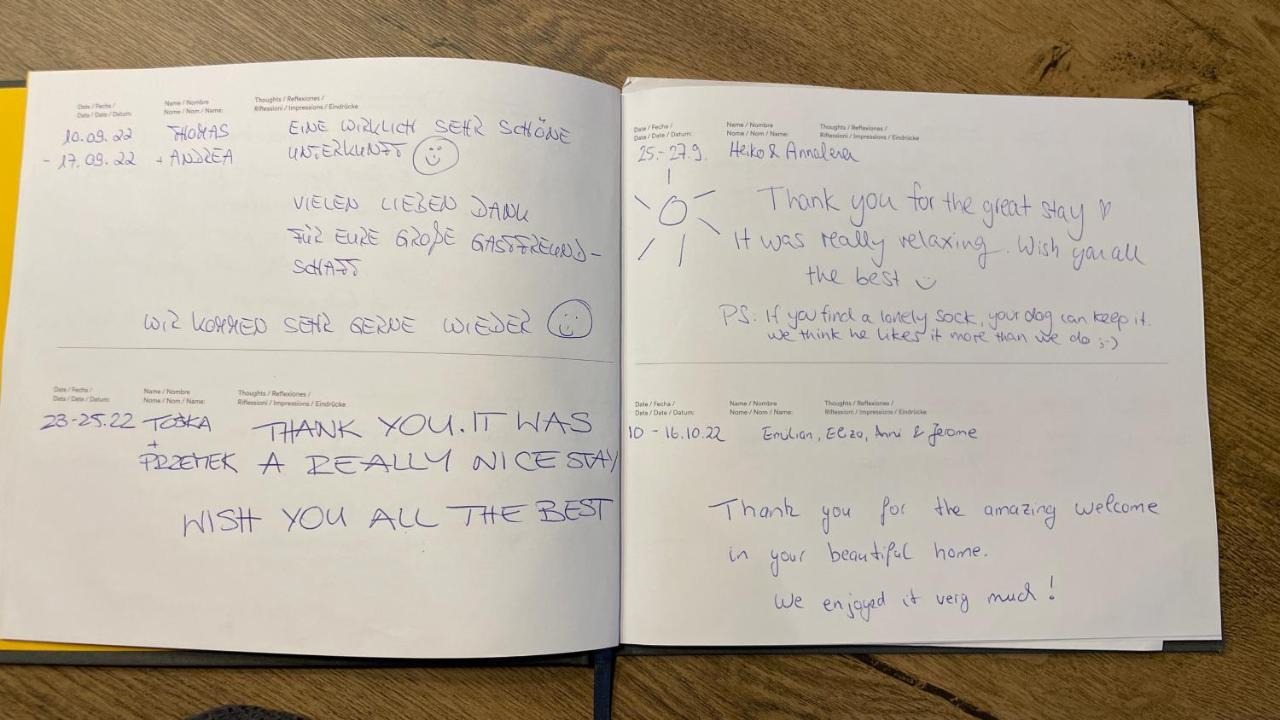 Date / Fecha /
Data / Date / Datum:
Name / Nombre
Nome / Nom / Name:
Thoughts / Reflexiones /
Riflessioni / Impressions / Eindrücke
10.09.22 THOMAS EINE WIRKLICH SEHR SCHÖNE
- 17.09.22 + ANDREA UNTERKUNFT
VIELEN LIEBEN DANK
FÜR EURE GROßE GASTFREUND-
SCHAFT
WIR KOMMEN SEHR GERNE WIEDER
Date / Fecha /
Data / Date / Datum:
Name / Nombre
Nome / Nom / Name:
Thoughts / Reflexiones /
Riflessioni / Impressions / Eindrücke
23-25.22 TOŚKA THANK YOU. IT WAS
+
PRZEMEK A REALLY NICE STAY
WISH YOU ALL THE BEST
Date / Fecha /
Data / Date / Datum:
Name / Nombre
Nome / Nom / Name:
Thoughts / Reflexiones /
Riflessioni / Impressions / Eindrücke
25.-27.9. Heiko & Annalena
Thank you for the great stay ♡
It was really relaxing. Wish you all
the best
PS: If you find a lonely sock, your dog can keep it.
We think he likes it more than we do ;-)
Date / Fecha /
Data / Date / Datum:
Name / Nombre
Nome / Nom / Name:
Thoughts / Reflexiones /
Riflessioni / Impressions / Eindrücke
10 - 16.10.22 Emilian, Eliza, Anni & Jerome
Thank you for the amazing welcome
in your beautiful home.
We enjoyed it very much!